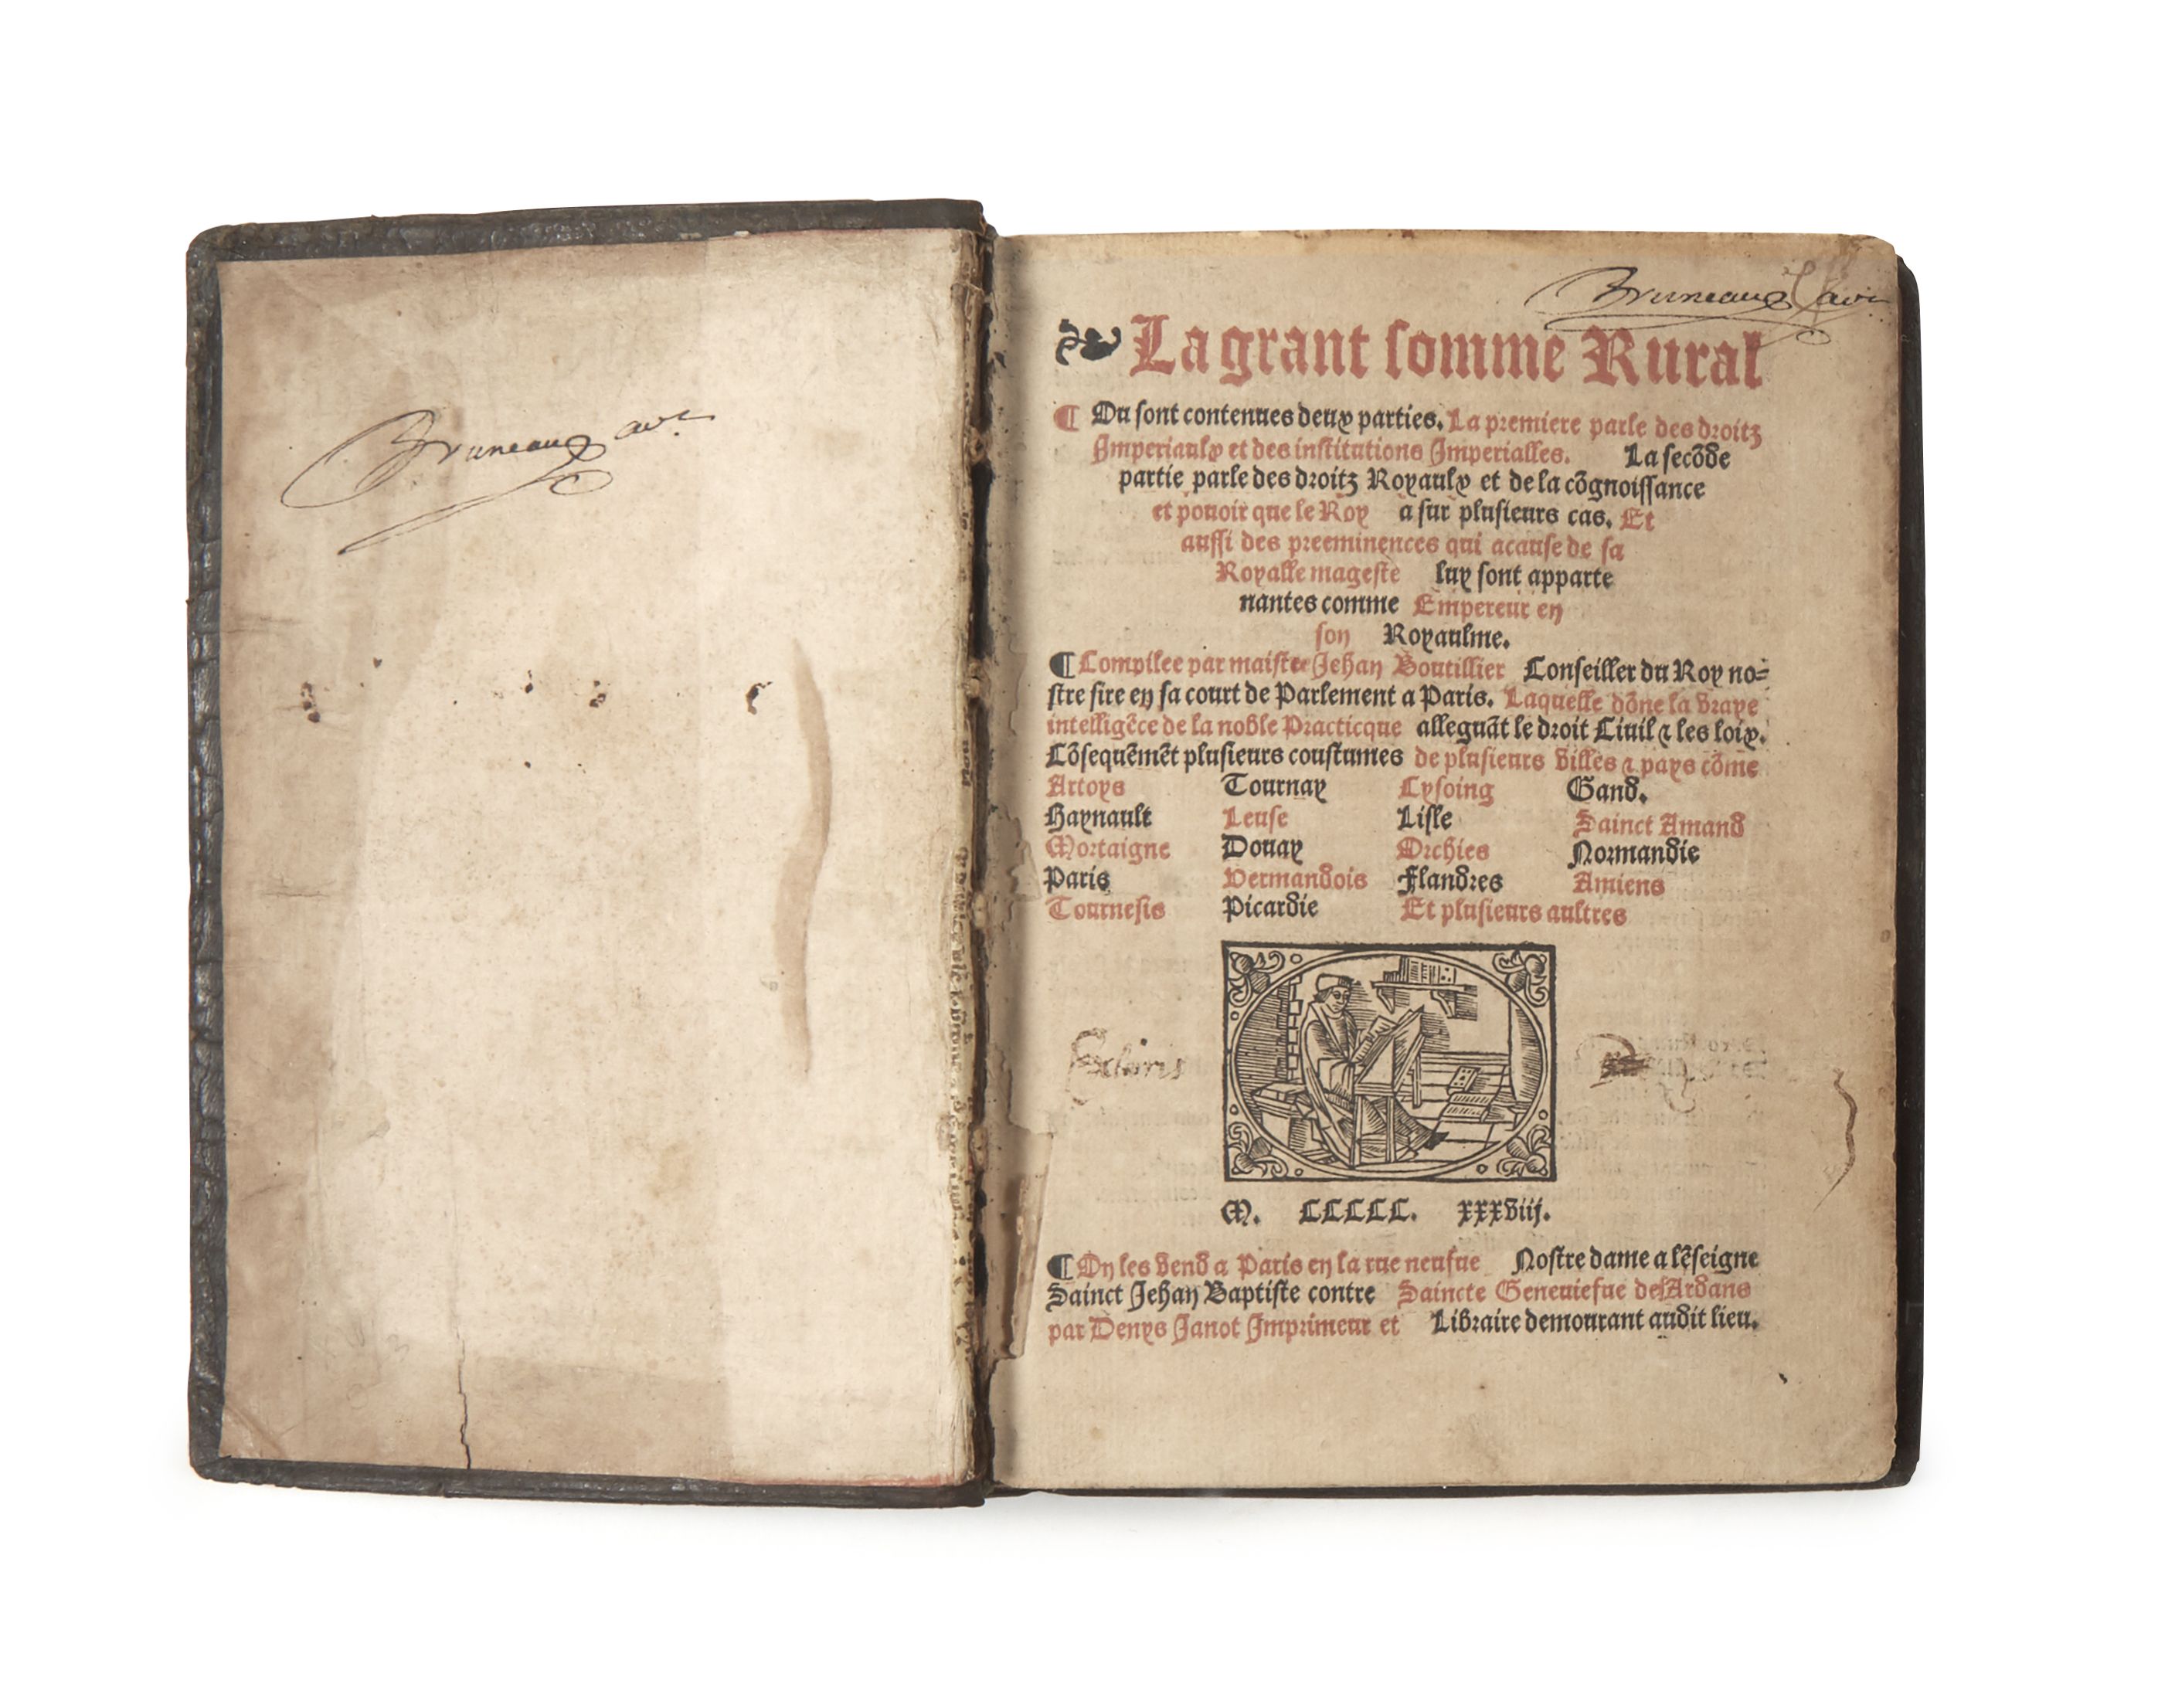 Bruneau
Bruneau
La grant somme Rural
¶ Ou sont contenues deux parties. La premiere parle des droitz
Imperiaulx et des institutions Imperialles. La secōde
partie parle des droitz Royaulx et de la cōgnoissance
et pouoir que le Roy a sur plusieurs cas. Et
aussi des preeminences qui acause de sa
Royalle mageste luy sont apparte
nantes comme Empereur en
son Royaulme.
¶ Compilee par maistre Jehan Boutillier Conseiller du Roy no=
stre sire en sa court de Parlement a Paris. Laquelle dōne la vraye
intelligēce de la noble Practicque alleguāt le droit Ciuil ⁊ les loix.
Cōsequēmēt plusieurs coustumes de plusieurs villes ⁊ pays cōme
Artoys Tournay Cysoing Gand.
Haynault Leuse Lisle Sainct Amand
Mortaigne Douay Orchies Normandie
Paris Vermandois Flandres Amiens
Tournesis Picardie Et plusieurs aultres
Ex libris
M. CCCCC. xxxviij.
¶ On les vend a Paris en la rue neufue Nostre dame a lēseigne
Sainct Jehan Baptiste contre Saincte Geneuiefue des Ardans
par Denys Janot Imprimeur et Libraire demourant audit lieu.